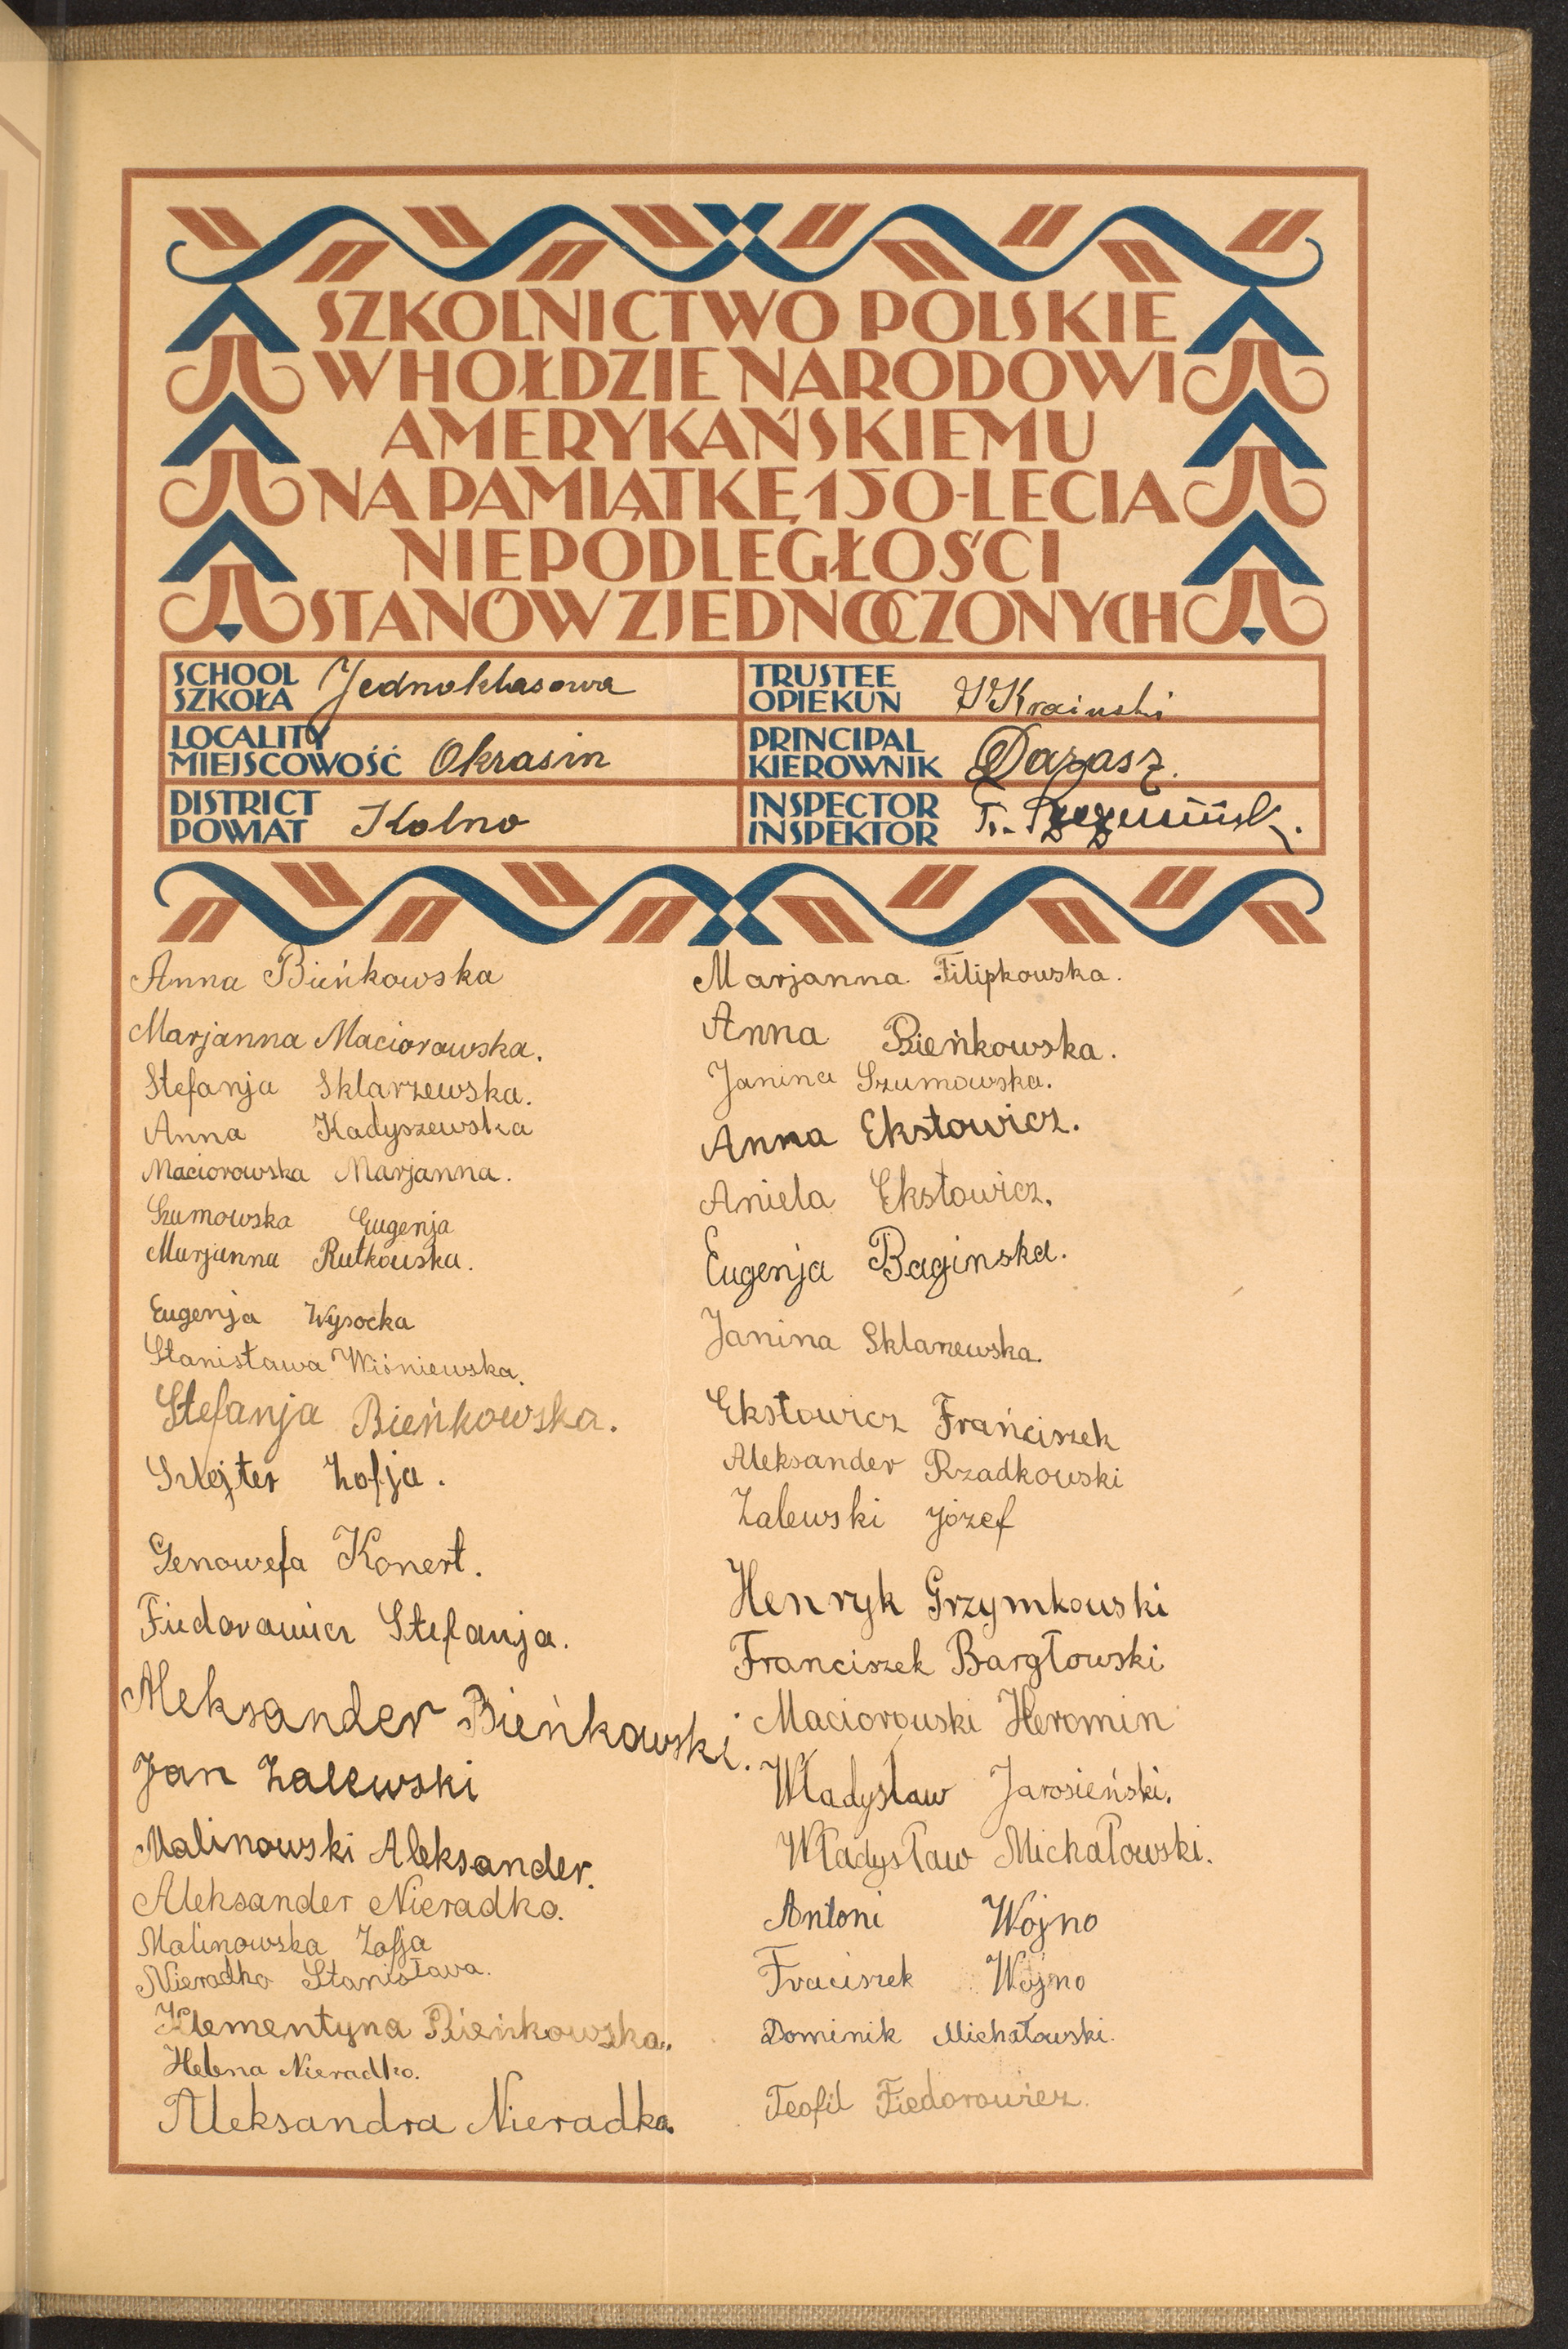 SZKOLNICTWO POLSKIE
W HOŁDZIE NARODOWI
AMERYKAŃSKIEMU
NA PAMIĄTKĘ 150-LECIA
NIEPODLEGŁOŚCI
STANÓW ZJEDNOCZONYCH
SCHOOL
SZKOŁA Jednoklasowa
LOCALITY
MIEJSCOWOŚĆ Okrasin
DISTRICT
POWIAT Kolno
TRUSTEE
OPIEKUN Krainski
PRINCIPAL
KIEROWNIK
INSPECTOR
INSPEKTOR
Anna Bieńkowska
Marjanna Maciorowska.
Stefanja Sklarzewska.
Anna Kadyszewska
Maciorowska Marjanna.
Szumowska Eugenja
Marjanna Rutkowska.
Eugenja Wysocka
Stanisława Wiśniewska.
Stefanja Bieńkowska.
Szlejter Zofja.
Genowefa Konert.
Fiedorowicz Stefanja.
Aleksander Bieńkowski.
Jan Zalewski
Malinowski Aleksander.
Aleksander Nieradko.
Malinowska Zofja
Nieradko Stanisława.
Klementyna Bieńkowska.
Helena Nieradko.
Aleksandra Nieradka.
Marjanna Filipkowska.
Anna Bieńkowska.
Janina Szumowska.
Anna Ekstowicz.
Aniela Ekstowicz.
Eugenja Baginska.
Janina Sklarzewska.
Ekstowicz Frańciszek
Aleksander Rzadkowski
Zalewski Józef
Henryk Grzymkowski
Franciszek Bargłowski
Maciorowski Heromin
Władysław Jarosieński.
Władysław Michałowski.
Antoni Wojno
Fraciszek Wojno
Dominik Michałowski.
Teofil Fiedorowicz.